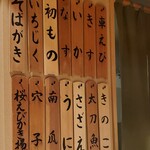 車えび
きす
いか
なす
初もの
いちじく
そばがき
きのこ
太刀魚
さざえ
うに
南瓜
穴子
桜えびかき揚